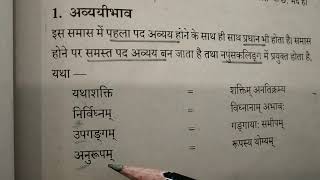 1. अव्ययीभाव
इस समास में पहला पद अव्यय होने के साथ ही साथ प्रधान भी होता है। समास
होने पर समस्त पद अव्यय बन जाता है तथा नपुंसकलिङ्ग में प्रयुक्त होता है,
यथा —
यथाशक्ति = शक्तिम् अनतिक्रम्य
निर्विघ्नम् = विघ्नानाम् अभावः
उपगङ्गम् = गङ्गायाः समीपम्
अनुरूपम् = रूपस्य योग्यम्